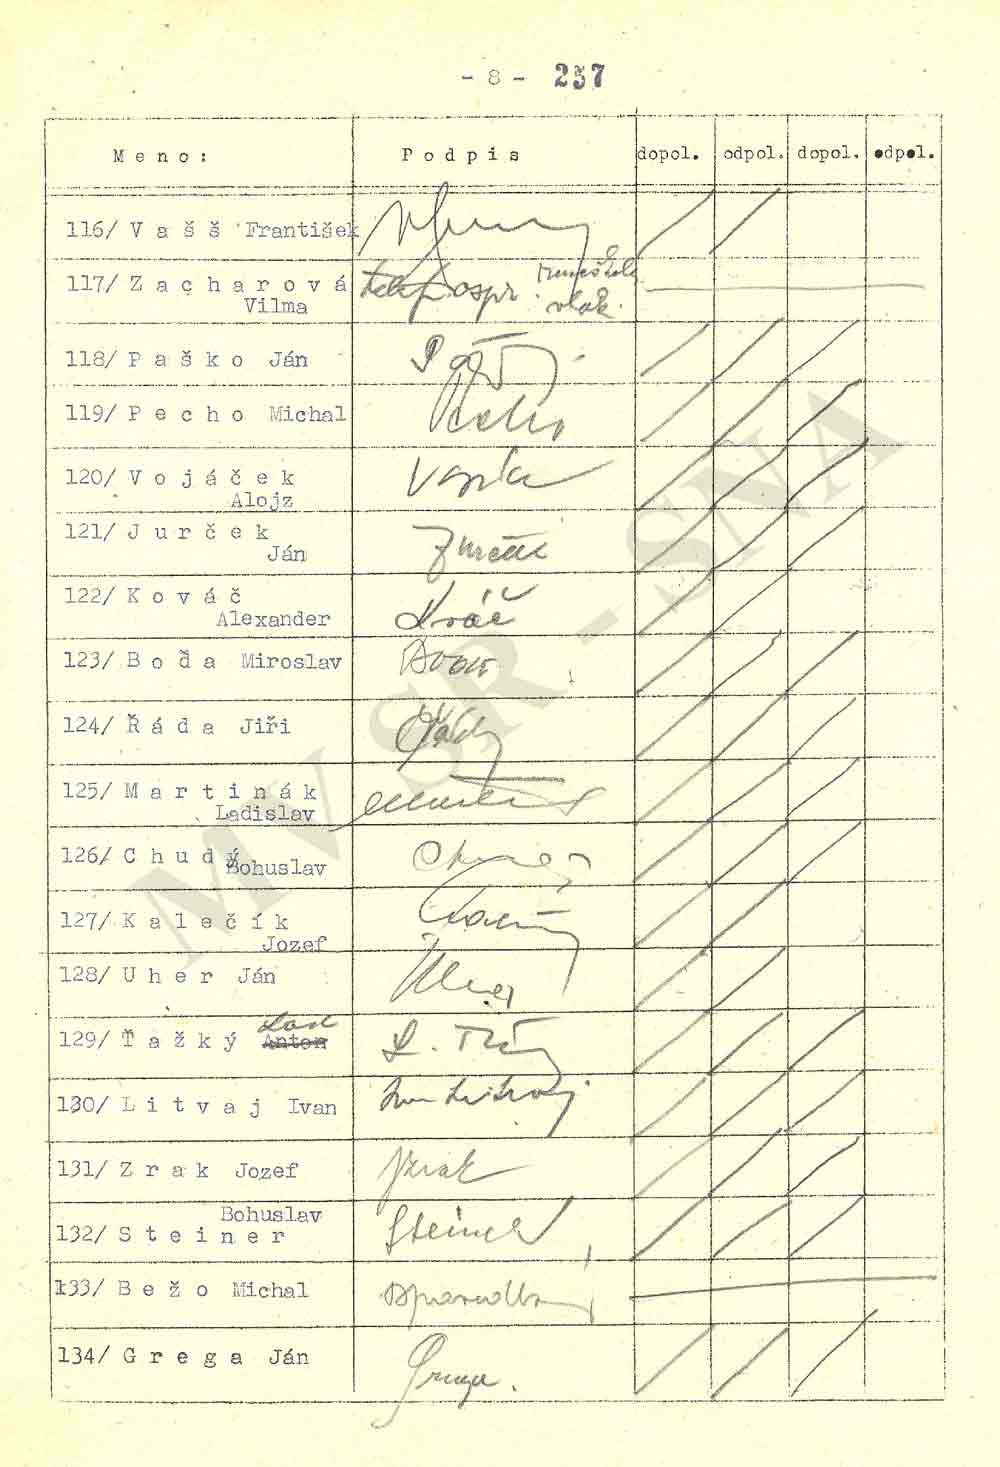 - 8 - 257
Meno: Podpis dopol. odpol. dopol. odpol.
116/ Vašš František
117/ Zacharová telef. ospr.
Vilma vlak.
118/ Paško Ján
119/ Pecho Michal Pecho
120/ Vojáček
Alojz
121/ Jurček Jurček
Ján
122/ Kováč Kováč
Alexander
123/ Boďa Miroslav
124/ Řáda Jiří
125/ Martinák
Ladislav
126/ Chudý
Bohuslav
127/ Kalečík
Jozef
128/ Uher Ján Uher
Lad
129/ Ťažký Anton L. Ťažký
130/ Litvaj Ivan Ivan Litvaj
131/ Zrak Jozef Zrak
Bohuslav
132/ Steiner Steiner
133/ Bežo Michal ospravedlnený
134/ Grega Ján Grega
MV SR - SNA